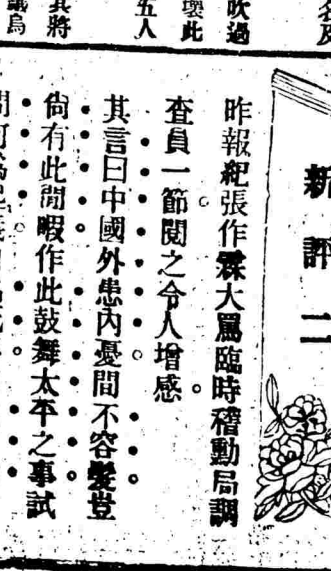 新評二
昨報紀張作霖大罵臨時稽勳局調
查員一節。閱之令人增感。
其言曰中國外患內憂間不容髮。豈
尙有此閒暇。作此鼓舞太平之事。試
名及
吹過
壞此
五人
其將